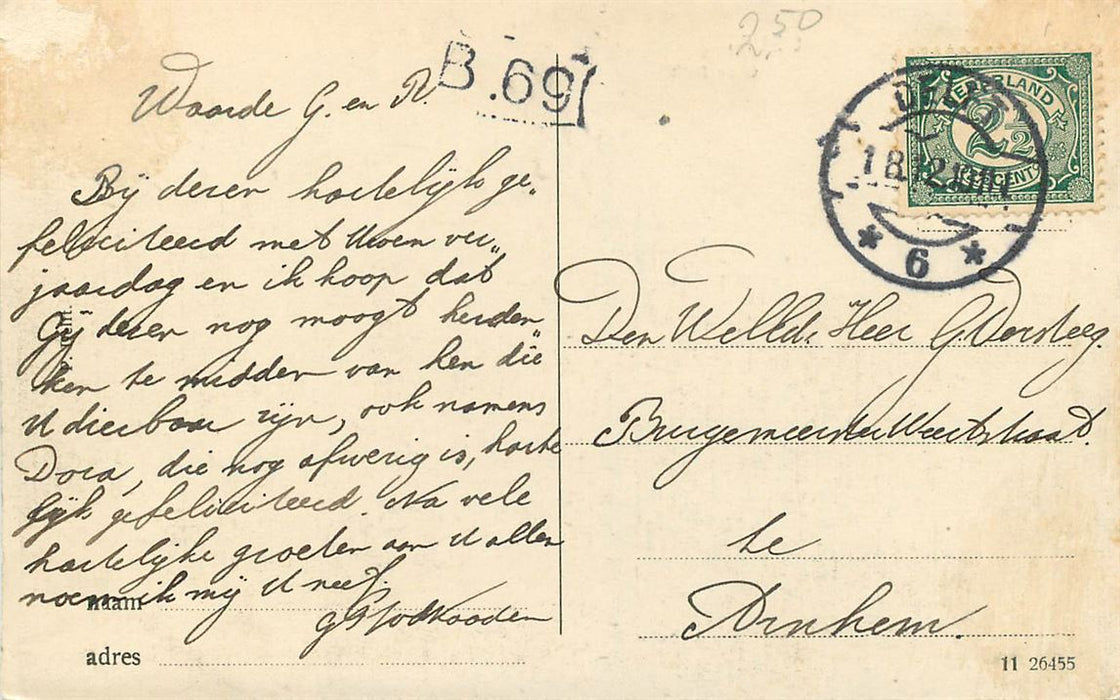 2.50
B.69
Waarde G. en R.
Bij dezen hartelijk ge„
feliciteerd met Uwen ver„
jaardag en ik hoop dat
Gij dezen nog moogt herden„
ken te midden van hen die
U dierbaar zijn, ook namens
Dora, die nog afwezig is, harte
lijk gefeliciteerd. Na vele
hartelijke groeten aan U allen
noem ik mij U neef,
naam
adres
NEDERLAND
2½
CENT
DELFT
6
Den WelEd. Heer G. Versteeg.
Burgemeester Weertstraat.
te
Arnhem.
11 26455